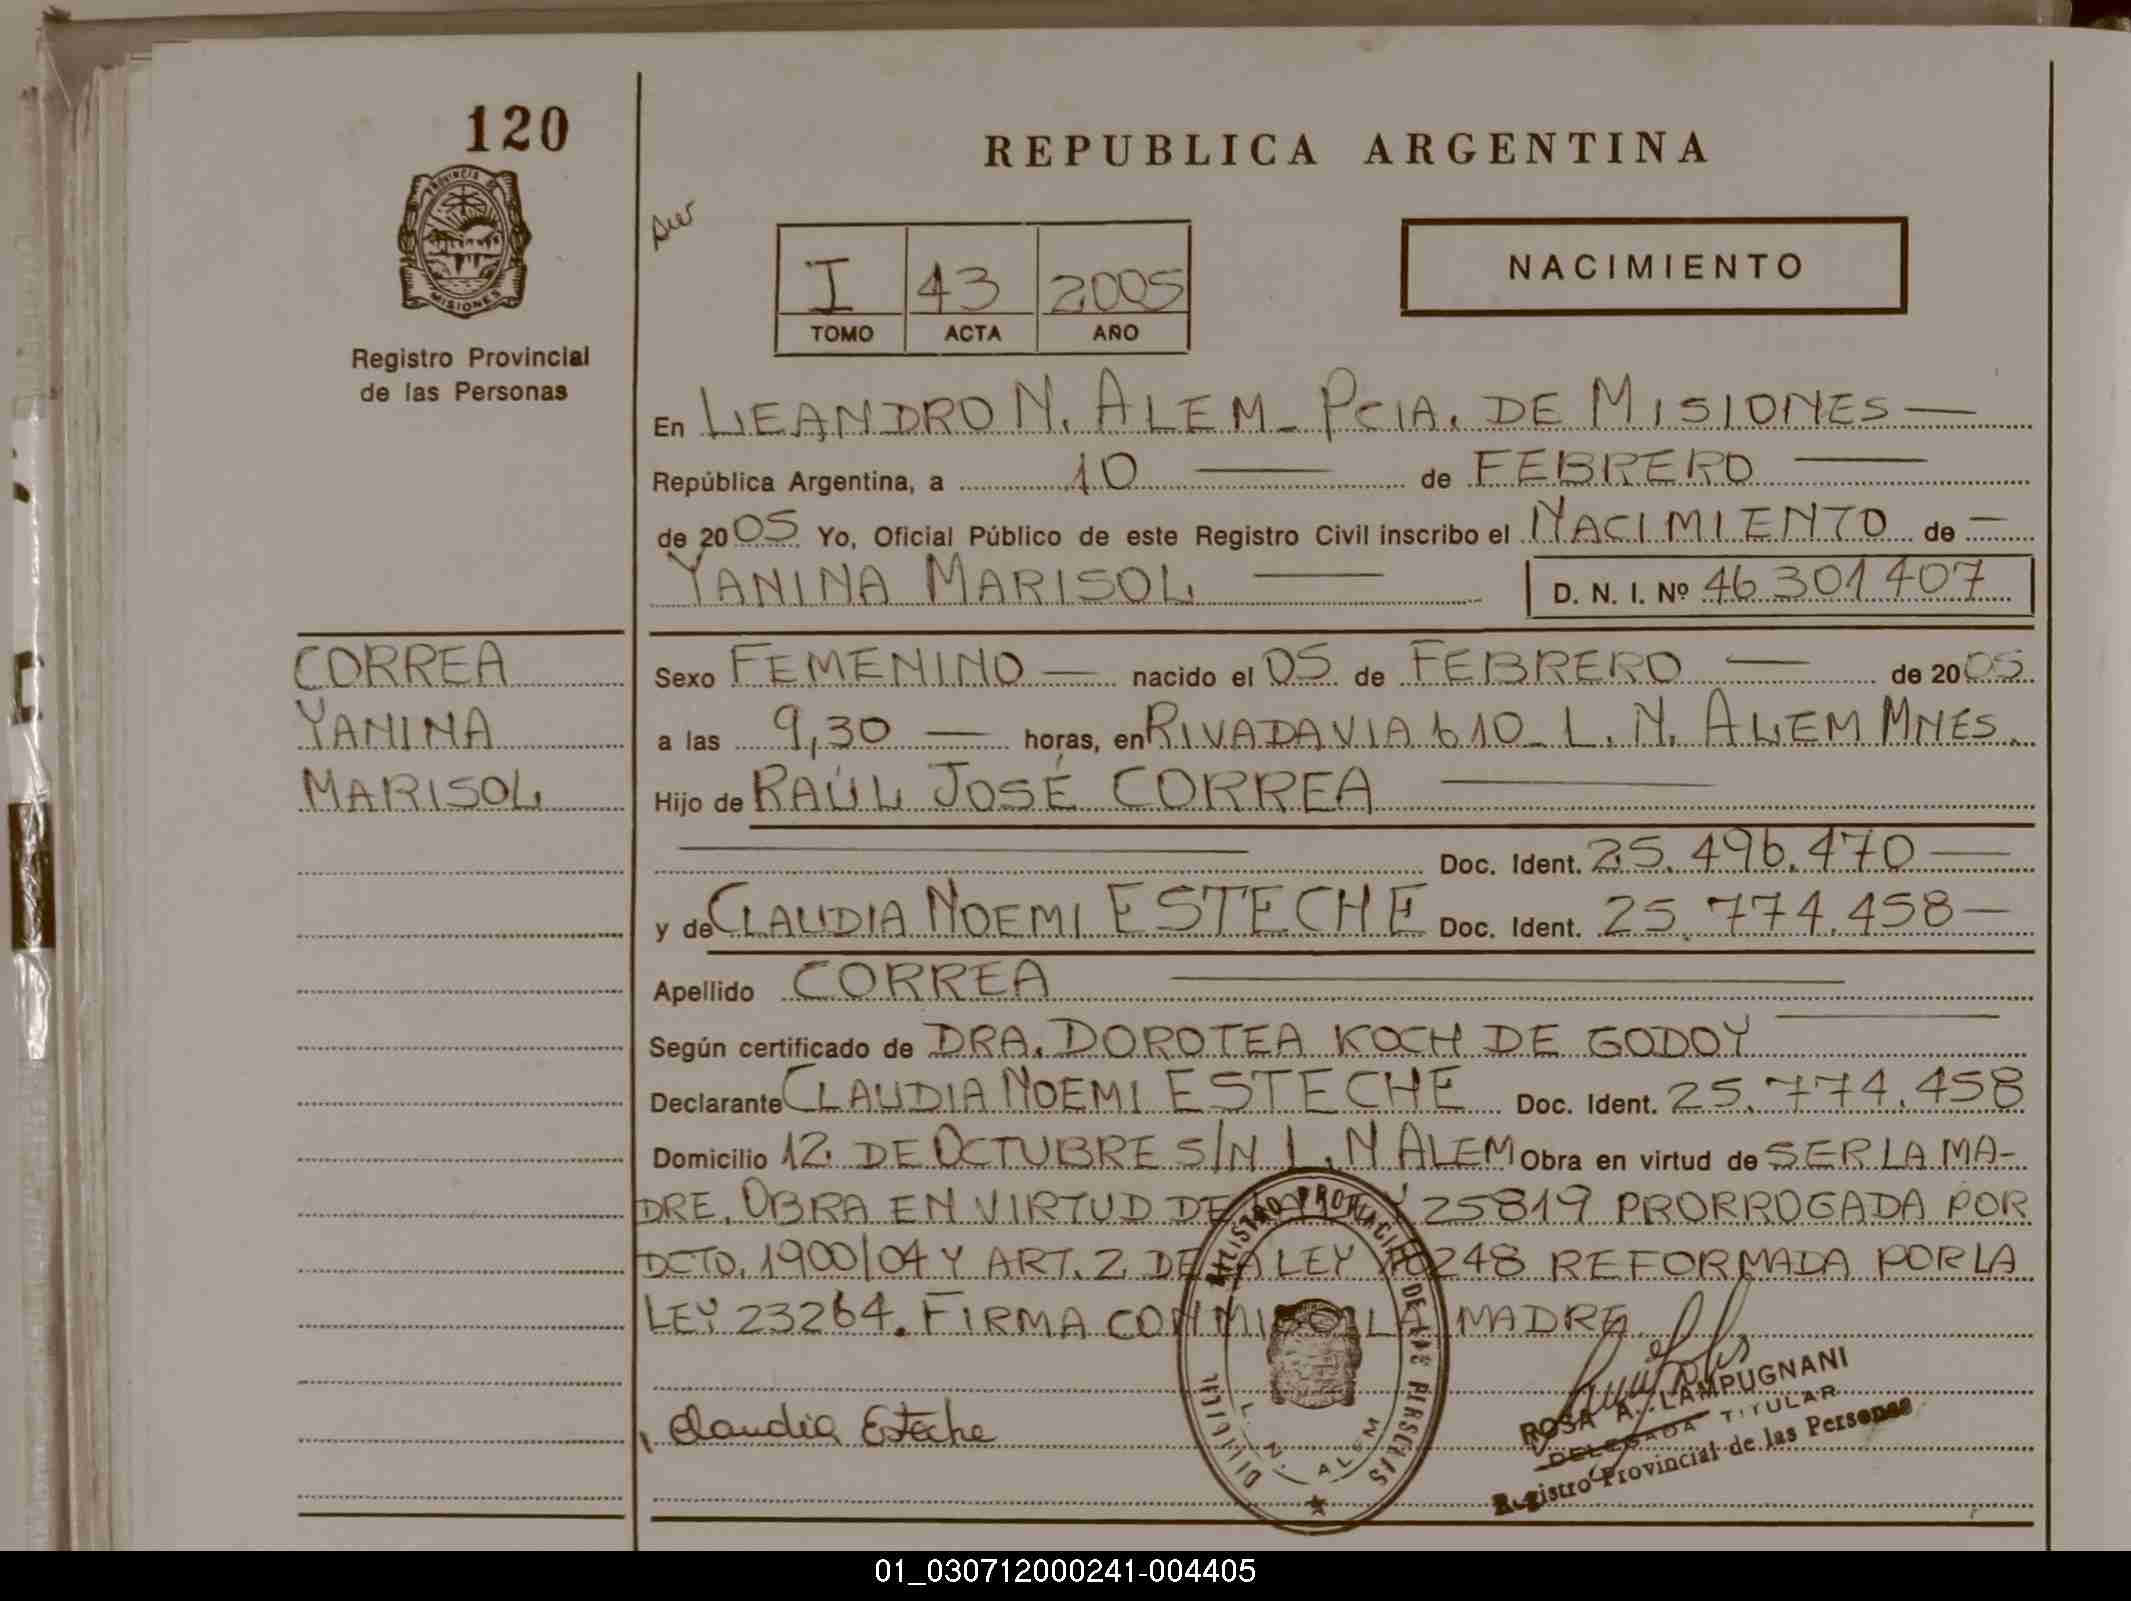 120
PROVINCIA DE
MISIONES
Registro Provincial
de las Personas
REPUBLICA ARGENTINA
I 43 2005
TOMO ACTA AÑO
NACIMIENTO
En LEANDRO N. ALEM - PCIA. DE MISIONES —
República Argentina, a 10 — de FEBRERO —
de 2005 Yo, Oficial Público de este Registro Civil inscribo el NACIMIENTO de —
YANINA MARISOL — D. N. I. Nº 46 301 407
CORREA
YANINA
MARISOL
Sexo FEMENINO — nacido el 05 de FEBRERO — de 2005
a las 9,30 — horas, en RIVADAVIA 610 - L. N. ALEM MNES.
Hijo de RAÚL JOSÉ CORREA —
— Doc. Ident. 25.496.470 —
y de CLAUDIA NOEMI ESTECHE Doc. Ident. 25.774.458 —
Apellido CORREA —
Según certificado de DRA. DOROTEA KOCH DE GODOY —
Declarante CLAUDIA NOEMI ESTECHE Doc. Ident. 25.774.458
Domicilio 12 DE OCTUBRE S/N L. N ALEM Obra en virtud de SER LA MA-
DRE. OBRA EN VIRTUD DE 25819 PRORROGADA POR
DCTO. 1900/04 Y ART. 2 DE LA LEY 18248 REFORMADA POR LA
LEY 23264. FIRMA CONMIGO LA MADRE
Claudia Esteche
REGISTRO PROVINCIAL DE LAS PERSONAS
L. N. ALEM
ROSA A. LAMPUGNANI
DELEGADA TITULAR
Registro Provincial de las Personas
01_030712000241-004405